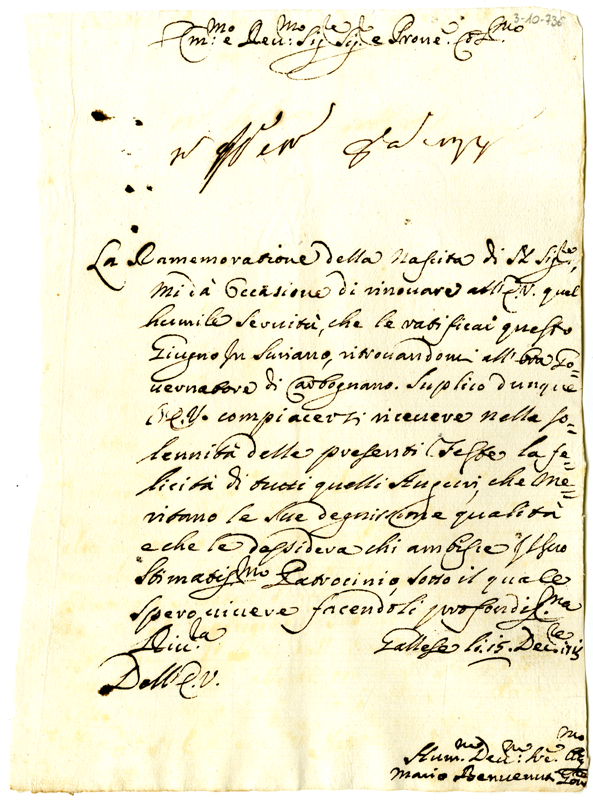 3-10-736
Em.mo e Rev.mo Sig.re Sig.re e Prone Col.mo
La Ramemoratione della Nascita di N. Sig.re,
mi dà occasione di rinovare all'E.V. quel
humile servitù, che le ratificai questo
Giugno in Suriano, ritrovandomi all'ora Go=
vernatore di Carbognano. Suplico dunque
l'E.V. compiacersi ricevere nella so=
lennità delle presenti Feste la fe=
licità di tutti quelli Auguri, che me=
ritano le sue degnissime qualità
e che le dessidera chi ambisce il suo
stimatiss.mo Patrocinio, sotto il quale
spero vivere facendoli profondiss.ma
Riv.a
Gallese li 15 Dec.re
Dell'E.V.
Hum.mo Dev.mo
Mario Benvenuti